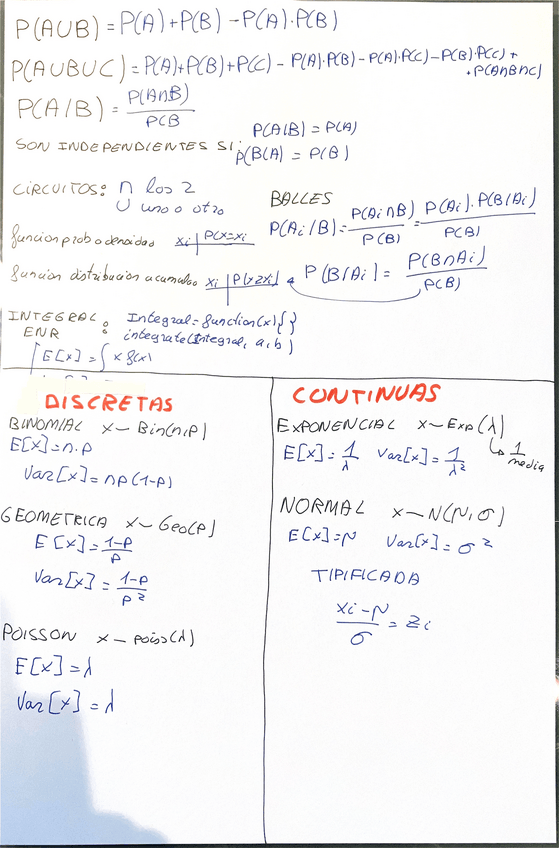 P(A∪B) = P(A)+P(B) - P(A)·P(B)
P(A∪B∪C) = P(A)+P(B)+P(C) - P(A)·P(B) - P(A)·P(C) - P(B)·P(C) +
+P(A∩B∩C)
P(A/B) = P(A∩B) / P(B
SON INDEPENDIENTES SI: P(A|B) = P(A)
P(B(A) = P(B)
CIRCUITOS: ∩ los 2
∪ uno o otro
BALLES
P(Ai/B) = P(Ai∩B) / P(B) = P(Ai)·P(B/Ai) / P(B)
funcion prob o densidad xi | P(X=xi)
funcion distribucion acumulos xi
P(B/Ai) = P(B∩Ai) / P(B)
INTEGRAL : Integral = function(x){ }
EN R : integrate(Integral, a,b)
E[x] = ∫ x f(x)
DISCRETAS
BINOMIAL x ~ Bin(n,p)
E[x] = n.p
Var[x] = np(1-p)
GEOMETRICA x ~ Geo(p)
E[x] = 1-p / p
Var[x] = 1-p / p²
POISSON x ~ poiss(λ)
E[x] = λ
Var[x] = λ
CONTINUAS
EXPONENCIAL x ~ Exp(λ)
↳ 1 / media
E[x] = 1/λ Var[x] = 1/λ²
NORMAL x ~ N(μ,σ)
E[x] = μ Var[x] = σ²
TIPIFICADA
xi - μ / σ = zi